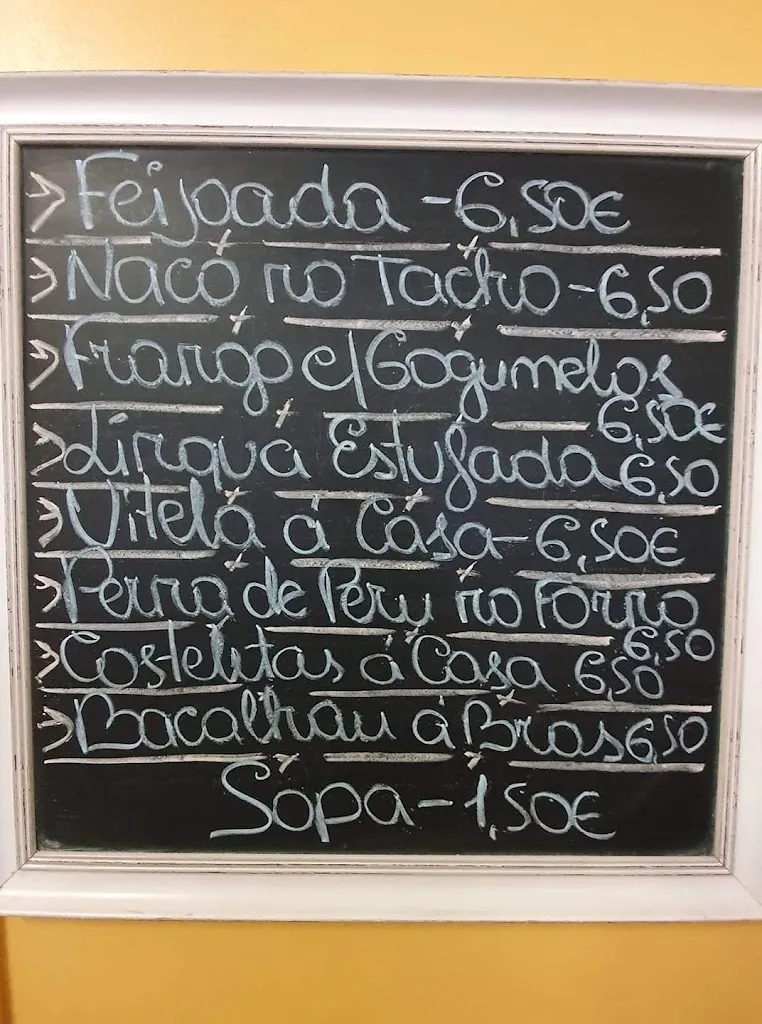 > Feijoada - 6,50€
> Naco no Tacho - 6,50
> Frango c/Cogumelos
6,50€
> Língua Estufada 6,50
> Vitela á Casa - 6,50€
> Perna de Peru no Forno
6,50
> Costeletas á Casa 6,50
> Bacalhau á Bras 6,50
Sopa - 1,50€